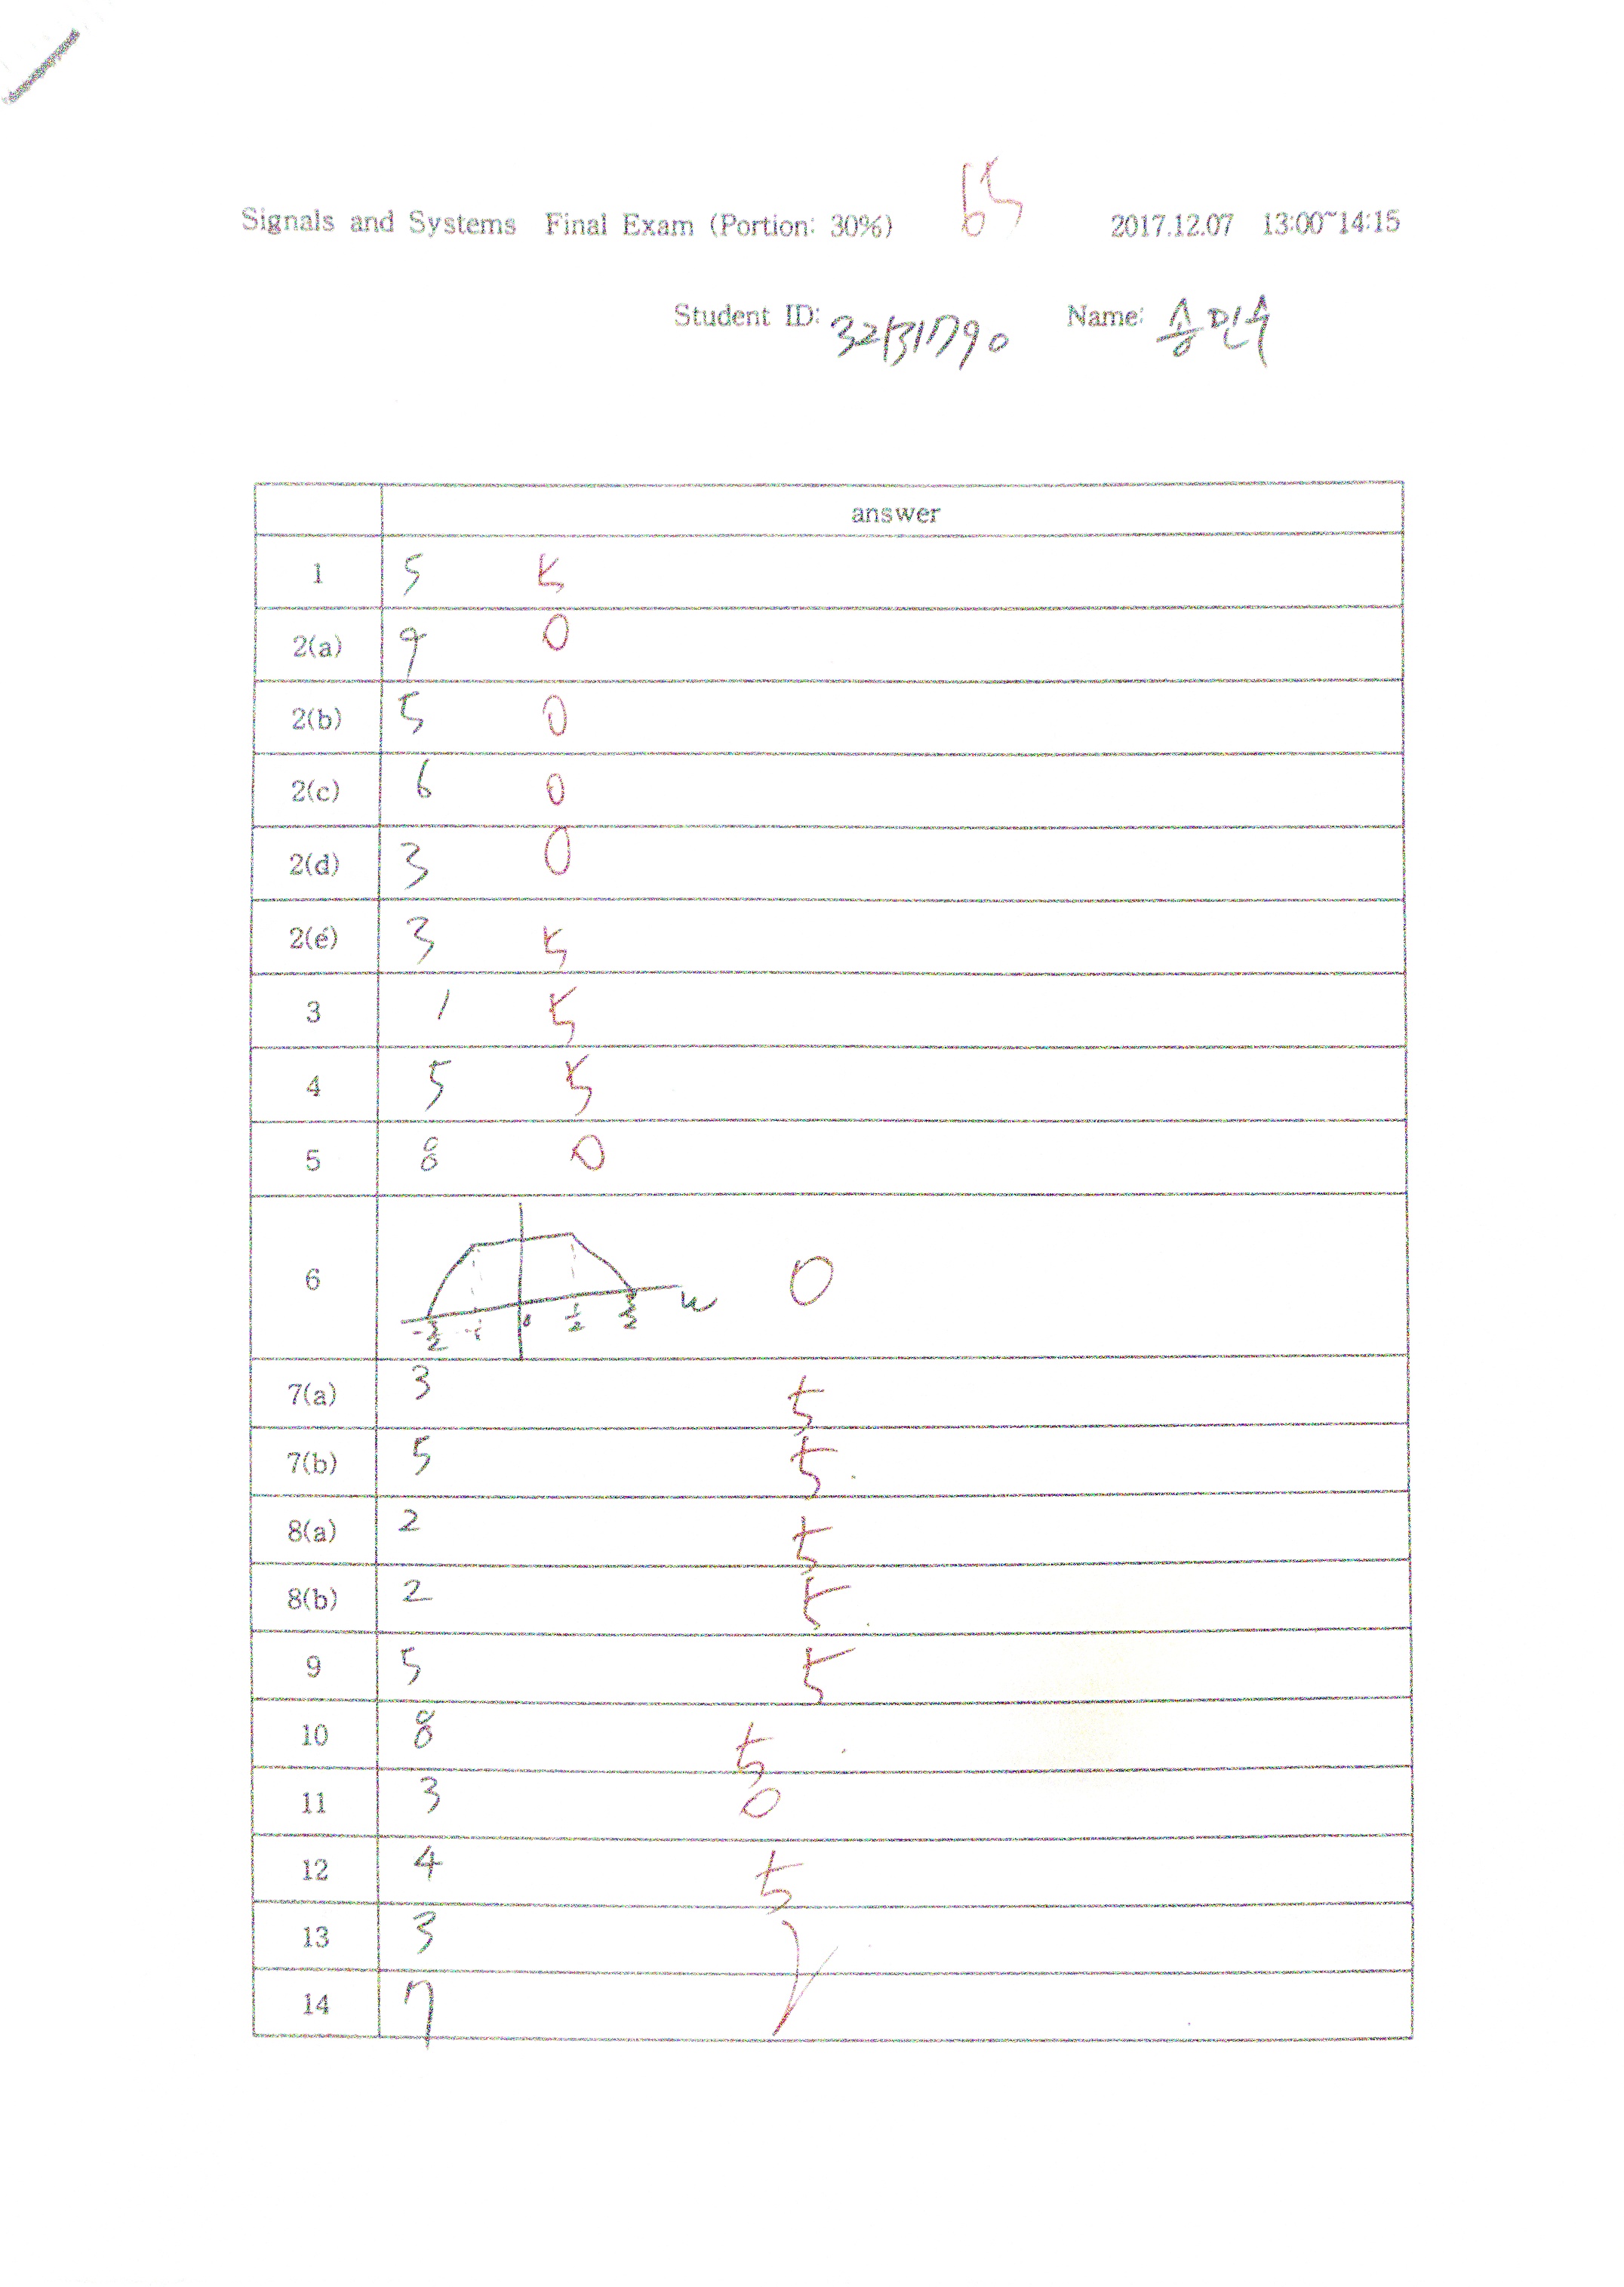 Signals and Systems Final Exam (Portion: 30%) 65 2017.12.07 13:00~14:15
Student ID: 32131790 Name: 송민수
answer
1 5 5
2(a) 9 0
2(b) 5 0
2(c) 6 0
2(d) 3 0
2(e) 3 5
3 1 5
4 5 5
5 8 0
6 0
-3/2 0 1/2 3/2 w
7(a) 3 5
7(b) 5 5
8(a) 2 5
8(b) 2 5
9 5 5
10 8 5
11 3 0
12 4 5
13 3
14 7